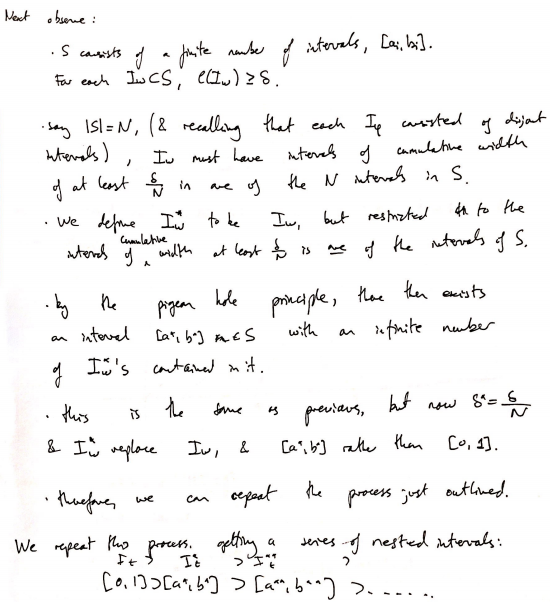 Next observe:
· S consists of a finite number of intervals, [ai, bi].
For each Iw ⊂ S, l(Iw) ≥ δ.
· say |S| = N, (& recalling that each Iφ consisted of disjoint
intervals), Iw must have intervals of cumulative width
of at least δ/N in one of the N intervals in S.
· We define Iw* to be Iw, but restricted to the
intervals of cumulative width at least δ/N is one of the intervals of S.
· by the pigeon hole principle, there then exists
an interval [a*, b*] ∈ S with an infinite number
of Iw*'s contained in it.
· this is the same as previous, but now δ* = δ/N
& Iw* replace Iw, & [a*, b*] rather than [0, 1].
· therefore, we can repeat the process just outlined.
We repeat this process, getting a series of nested intervals:
It > It* > It** >
[0, 1] > [a*, b*] > [a**, b**] > ......